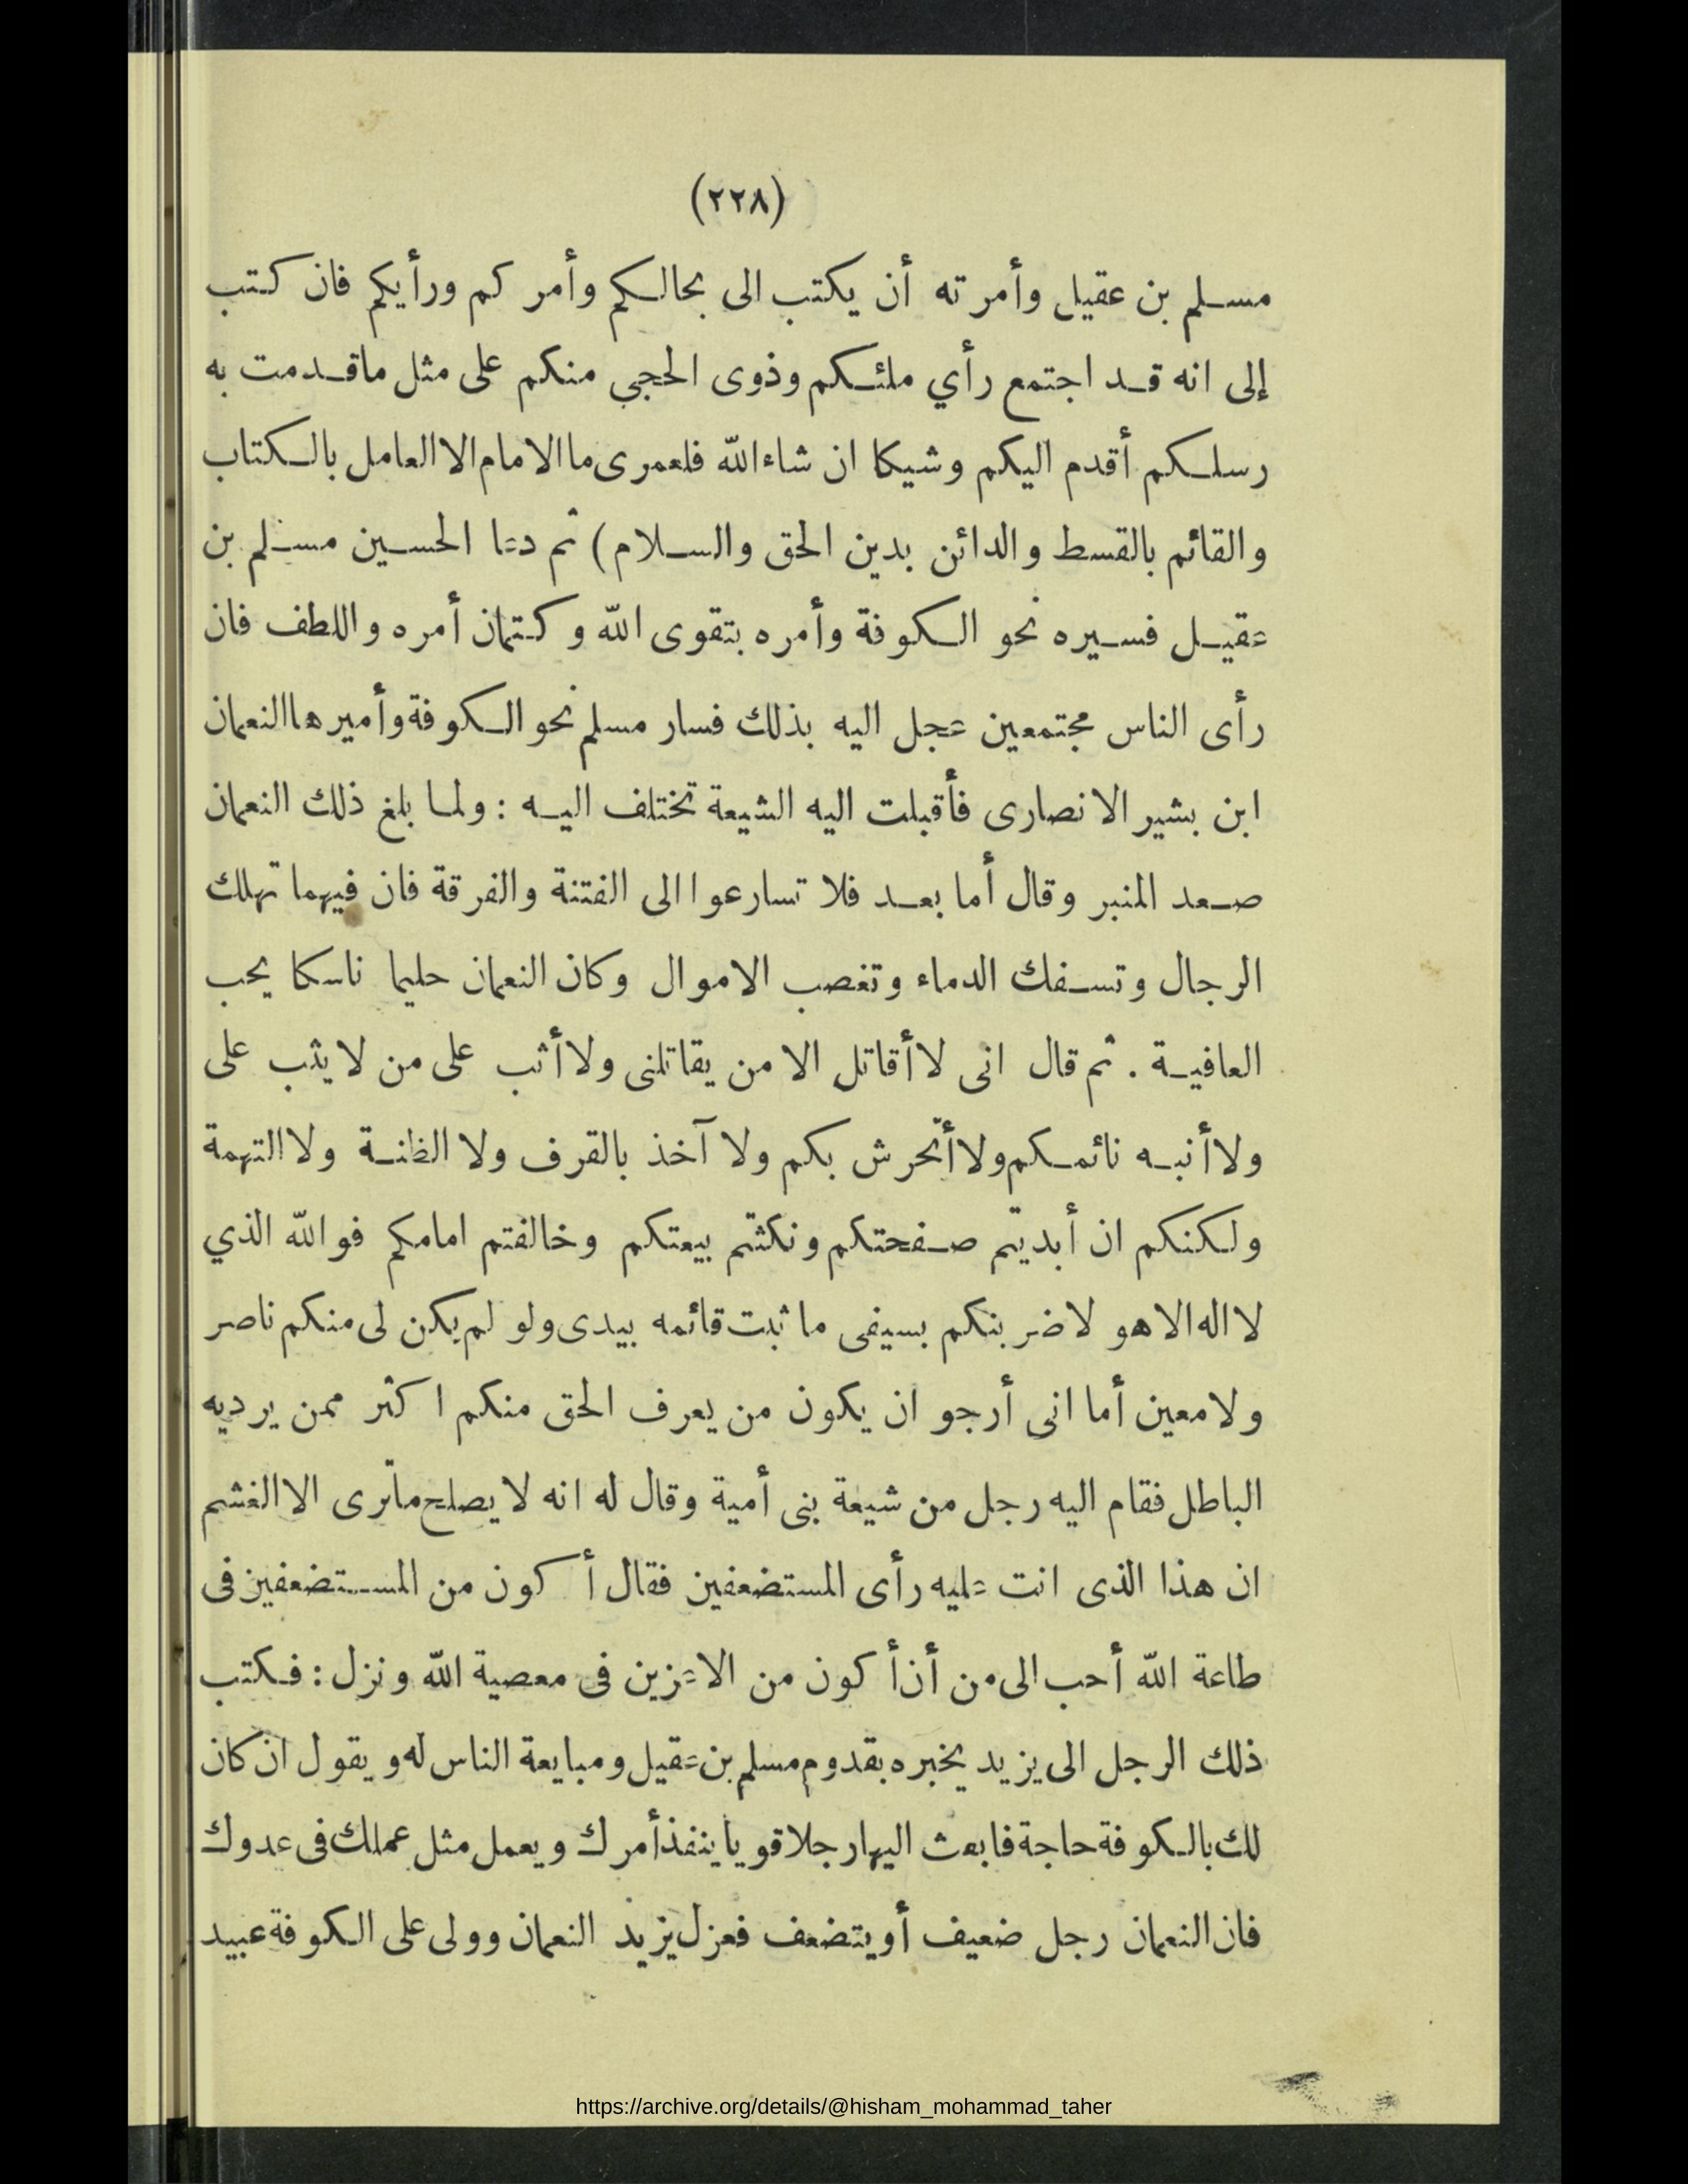 (٢٢٨)
مسلم بن عقيل وأمرته أن يكتب الى بحالكم وأمركم ورأيكم فان كتب
إلى انه قد اجتمع رأي ملئكم وذوى الحجي منكم على مثل ماقدمت به
رسلكم أقدم اليكم وشيكا ان شاء الله فلعمرى ما الامام الا العامل بالكتاب
والقائم بالقسط والدائن بدين الحق والسلام) ثم دعا الحسين مسلم بن
عقيل فسيره نحو الكوفة وأمره بتقوى الله وكتمان أمره واللطف فان
رأى الناس مجتمعين عجل اليه بذلك فسار مسلم نحو الكوفة وأميرها النعمان
ابن بشير الانصارى فأقبلت اليه الشيعة تختلف اليه : ولما بلغ ذلك النعمان
صعد المنبر وقال أما بعد فلا تسارعوا الى الفتنة والفرقة فان فيهما تهلك
الرجال وتسفك الدماء وتغصب الاموال وكان النعمان حليما ناسكا يحب
العافية . ثم قال انى لا أقاتل الا من يقاتلنى ولا أثب على من لا يثب على
ولا أنبه نائمكم ولا أتحرش بكم ولا آخذ بالقرف ولا الظنة ولا التهمة
ولكنكم ان أبديتم صفحتكم ونكثتم بيعتكم وخالفتم امامكم فوالله الذي
لا اله الا هو لاضربنكم بسيفى ما ثبت قائمه بيدى ولو لم يكن لى منكم ناصر
ولا معين أما انى أرجو ان يكون من يعرف الحق منكم اكثر ممن يرديه
الباطل فقام اليه رجل من شيعة بنى أمية وقال له انه لا يصلح ماترى الا الغشم
ان هذا الذى انت عليه رأى المستضعفين فقال أكون من المستضعفين فى
طاعة الله أحب الى من أن أكون من الاعزين فى معصية الله ونزل : فكتب
ذلك الرجل الى يزيد يخبره بقدوم مسلم بن عقيل ومبايعة الناس له ويقول ان كان
لك بالكوفة حاجة فابعث اليها رجلا قويا ينفذ أمرك ويعمل مثل عملك فى عدوك
فان النعمان رجل ضعيف أو يتضعف فعزل يزيد النعمان وولى على الكوفة عبيد
https://archive.org/details/@hisham_mohammad_taher